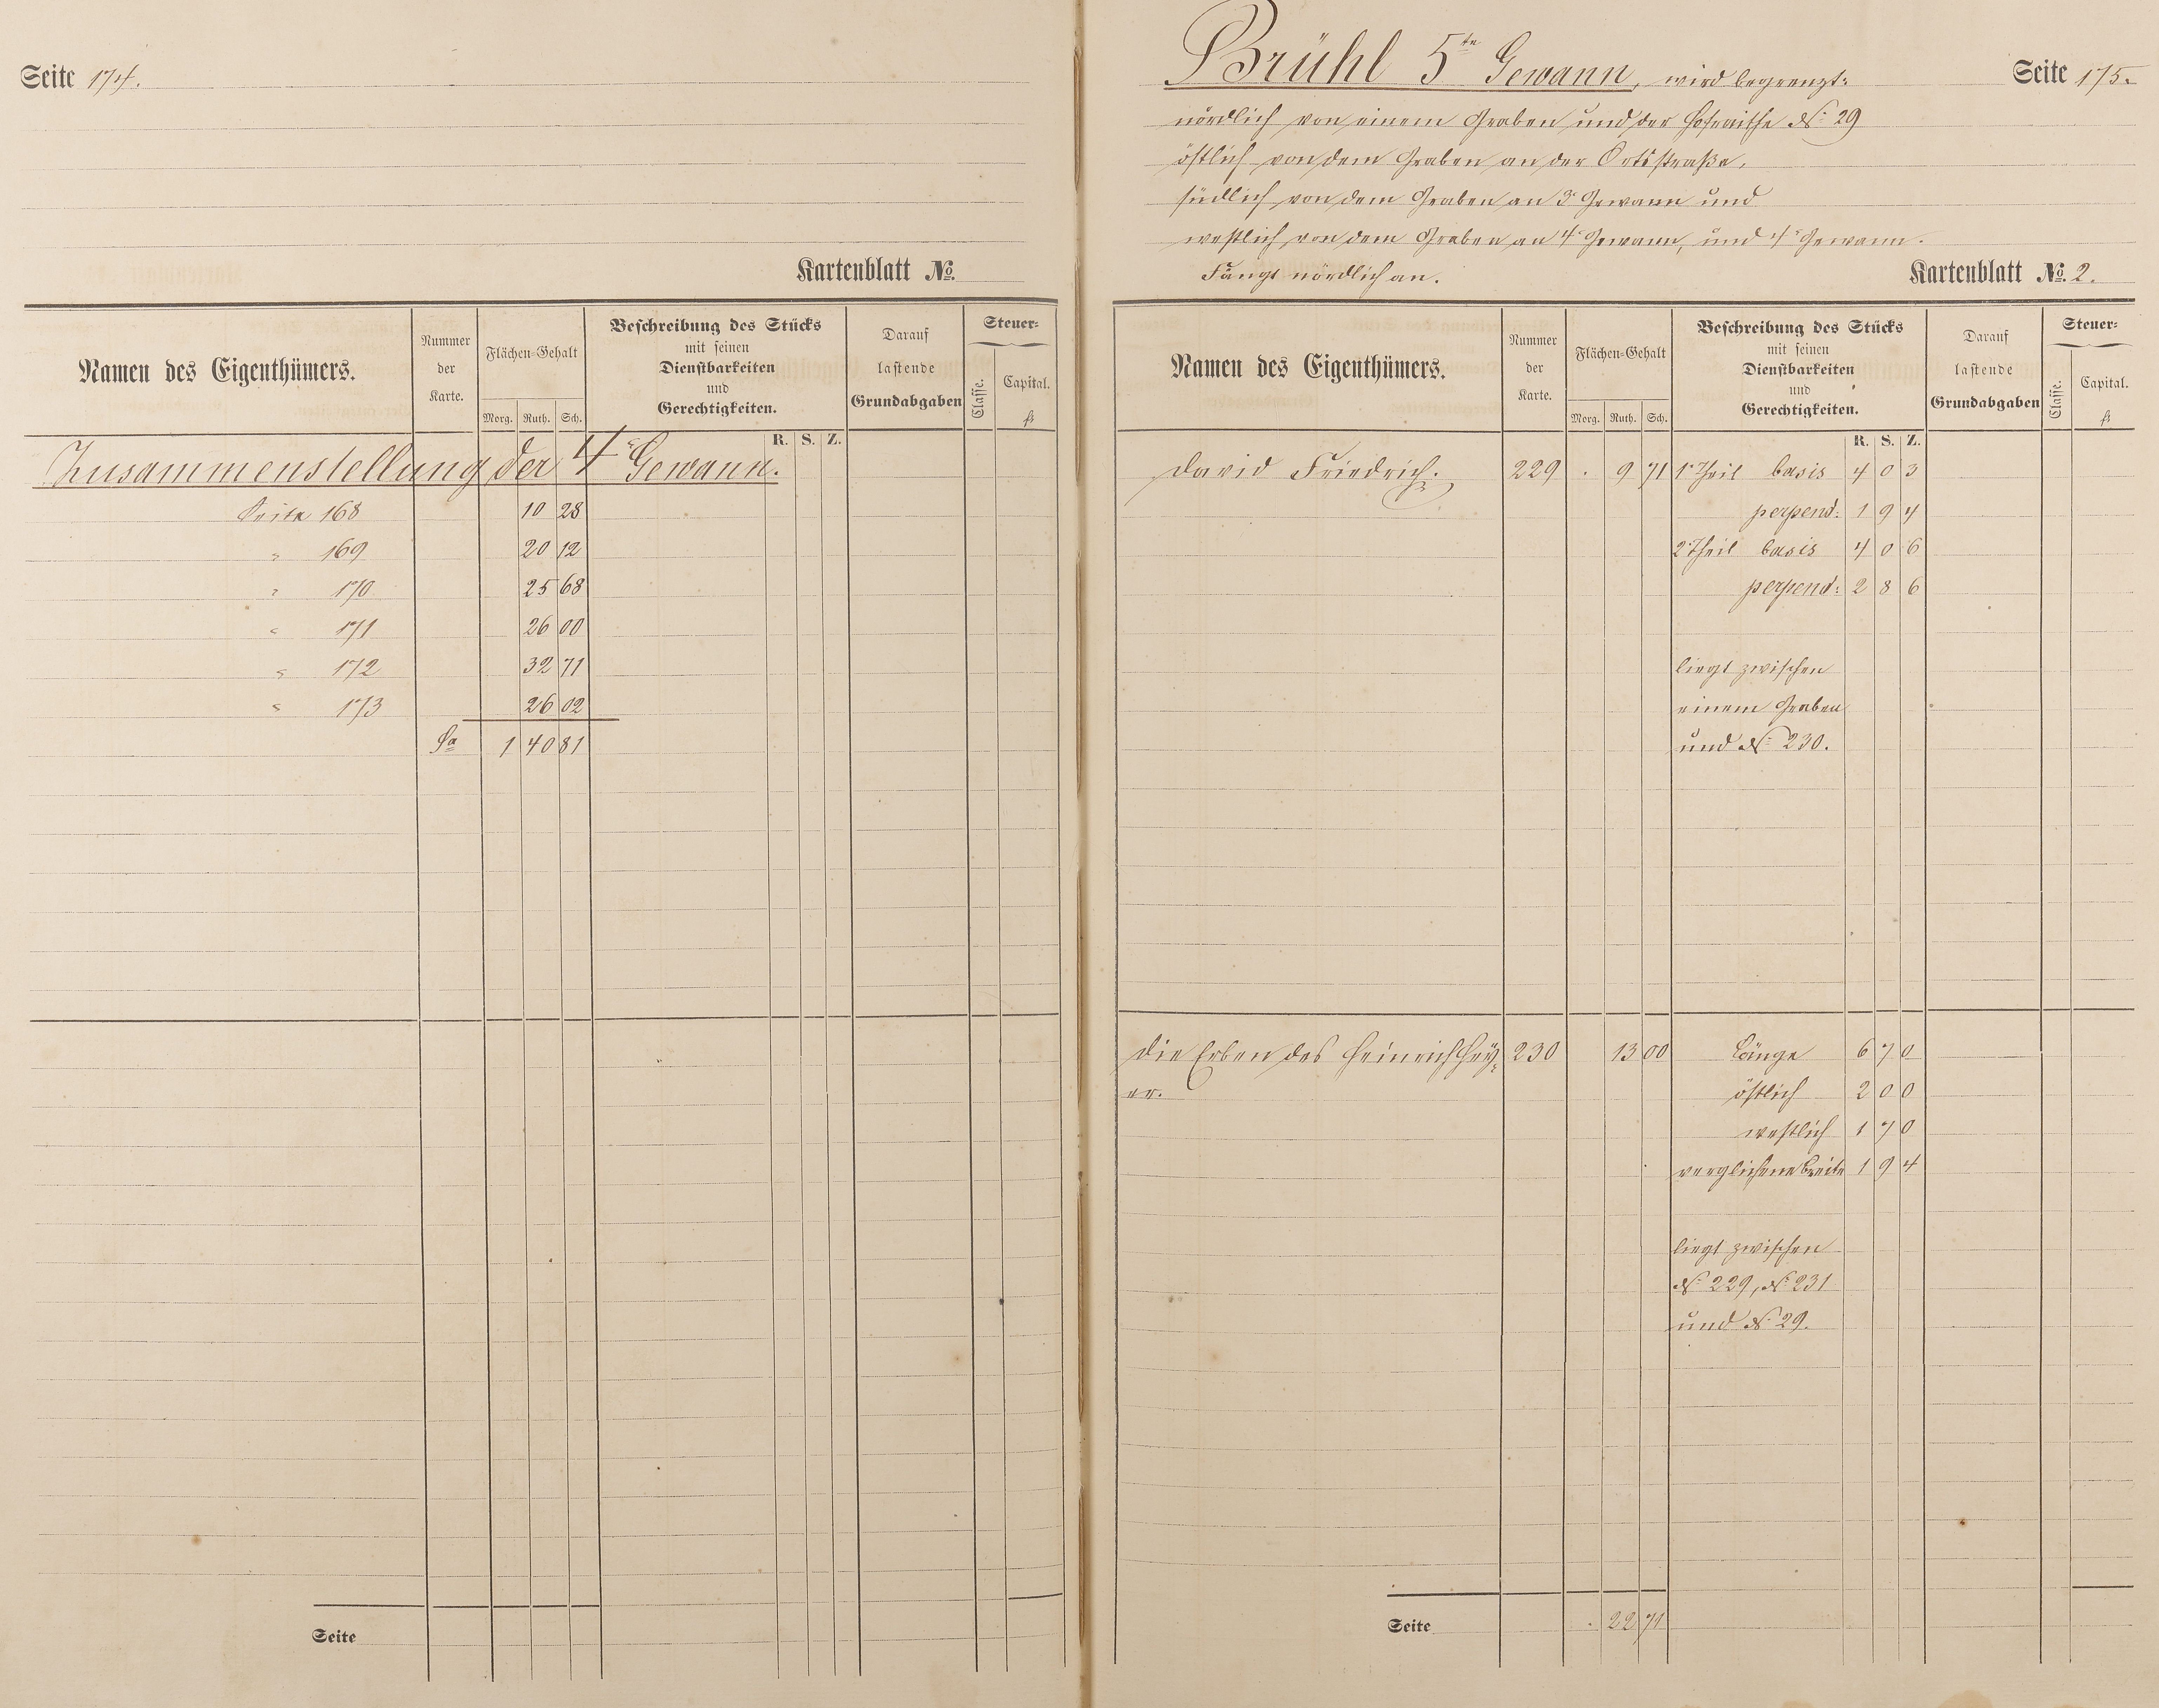 Seite 174.
Kartenblatt No.
Namen des Eigenthümers.
Nummer der Karte.
Flächen-Gehalt
Morg. Ruth. Sch.
Beschreibung des Stücks
mit seinen
Dienstbarkeiten
und
Gerechtigkeiten.
Darauf
lastende
Grundabgaben
Steuer-
Classe. Capital.
fl
R. S. Z.
Zusammenstellung der 4e Gewann.
Seite 168 10 28
" 169 20 12
" 170 25 68
" 171 26 00
" 172 32 71
" 173 26 02
Sa 1 40 81
Seite
Brühl 5te Gewann, wird begrenzt: Seite 175.
nördlich von einem Graben und der Hofraithe No 29
östlich von dem Graben an der Ortsstraße,
südlich von dem Graben an 3e Gewann und
westlich von dem Graben an 4e Gewann, und 4e Gewann.
Fängt nördlich an. Kartenblatt No. 2.
Namen des Eigenthümers.
Nummer der Karte.
Flächen-Gehalt
Morg. Ruth. Sch.
Beschreibung des Stücks
mit seinen
Dienstbarkeiten
und
Gerechtigkeiten.
Darauf
lastende
Grundabgaben
Steuer-
Classe. Capital.
fl
R. S. Z.
David Friedrich. 229 . 9 71 1r Theil basis 4 0 3
perpend: 1 9 4
2r Theil basis 4 0 6
perpend: 2 8 6
liegt zwischen
einem Graben
und No 230.
Die Erben des Heinrich Hey- 230 13 00 Länge 6 7 0
er. östlich 2 0 0
westlich 1 7 0
verglichene Breite 1 9 4
liegt zwischen
No 229, No 231
und No 29.
Seite . 22 71